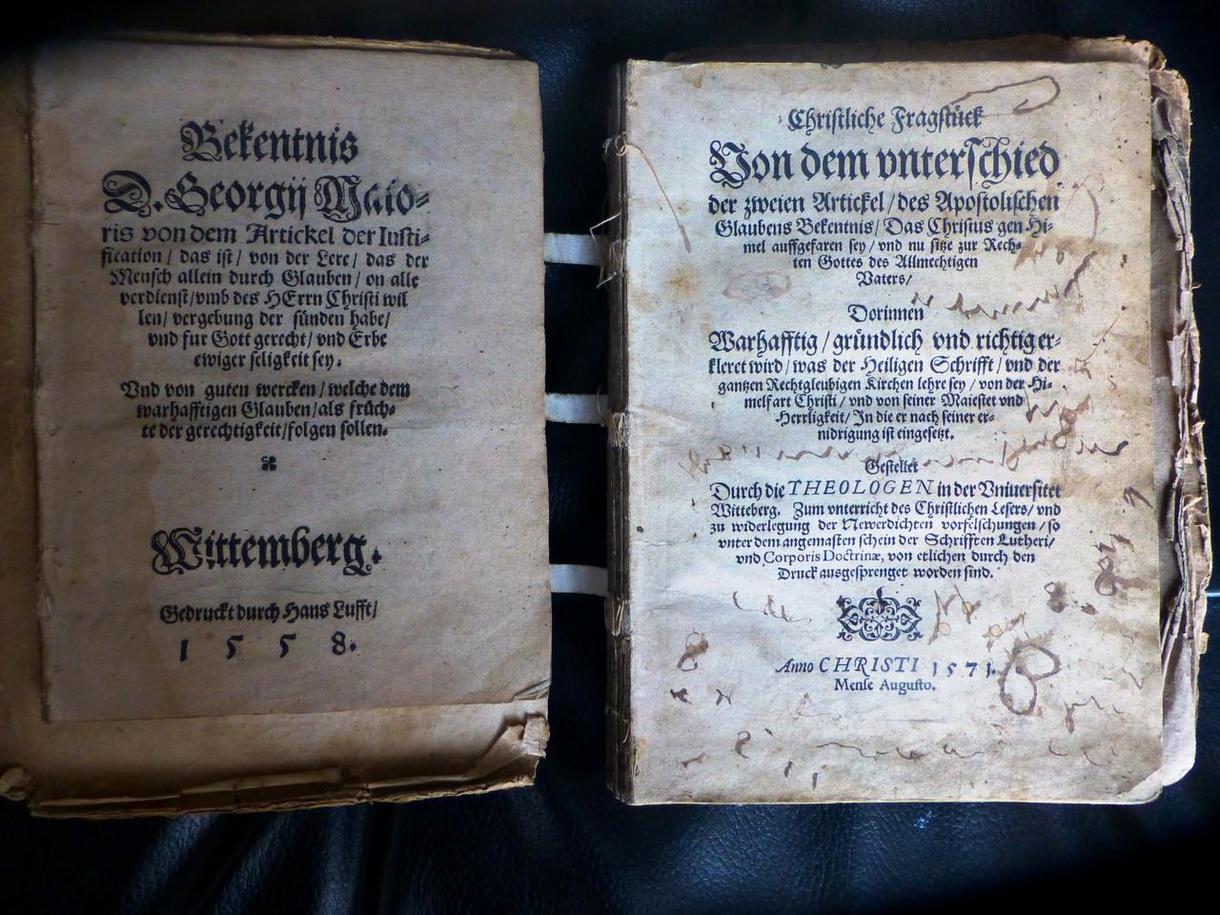 Bekentnis
D. Georgij Maio-
ris von dem Artickel der Iusti-
fication / das ist / von der Lere / das der
Mensch allein durch Glauben / on alle
verdienst / vmb des HErrn Christi wil
len / vergebung der sünden habe /
vnd fur Gott gerecht / vnd Erbe
ewiger seligkeit sey.
Vnd von guten wercken / welche dem
warhafftigen Glauben / als früch-
te der gerechtigkeit / folgen sollen.
Wittemberg.
Gedruckt durch Hans Lufft /
1 5 5 8.
Christliche Fragstück
Von dem vnterschied
der zweien Artickel / des Apostolischen
Glaubens Bekentnis / Das Christus gen Hi-
mel auffgefaren sey / vnd nu sitze zur Rech-
ten Gottes des Allmechtigen
Vaters /
Dorinnen
Warhafftig / gründlich vnd richtig er-
kleret wird / was der Heiligen Schrifft / vnd der
gantzen Rechtgleubigen Kirchen lehre sey / von der Hi-
melfart Christi / vnd von seiner Maiestet vnd
Herrligkeit / In die er nach seiner er-
nidrigung ist eingesetzt.
Gestellet
Durch die THEOLOGEN in der Vniuersitet
Witteberg. Zum vnterricht des Christlichen Lesers / vnd
zu widerlegung der Newerdichten vorfelschungen / so
vnter dem angemasten schein der Schrifften Lutheri /
vnd Corporis Doctrinæ, von etlichen durch den
Druck ausgesprenget worden sind.
Anno CHRISTI 1 5 7 1.
Mense Augusto.